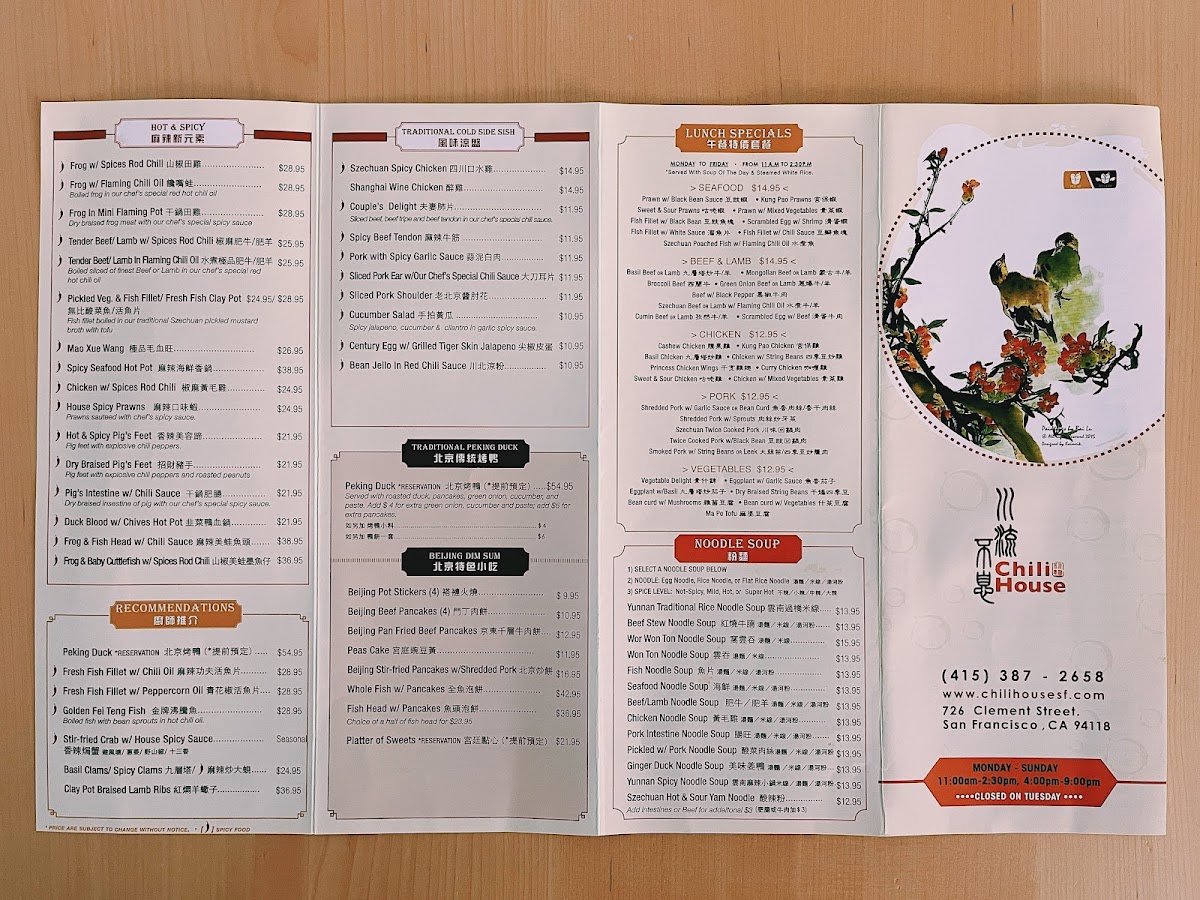 HOT & SPICY
麻辣新元素
Frog w/ Spices Rod Chili 山椒田雞 $28.95
Frog w/ Flaming Chili Oil 饞嘴蛙 $28.95
Boiled frog in our chef's special red hot chili oil
Frog In Mini Flaming Pot 干鍋田雞 $28.95
Dry braised frog meat with our chef's special spicy sauce
Tender Beef/ Lamb w/ Spices Rod Chili 椒麻肥牛/肥羊 $25.95
Tender Beef/ Lamb In Flaming Chili Oil 水煮極品肥牛/肥羊 $25.95
Boiled sliced of finest Beef or Lamb in our chef's special red
hot chili oil
Pickled Veg. & Fish Fillet/ Fresh Fish Clay Pot $24.95/ $28.95
無比酸菜魚/活魚片
Fish fillet boiled in our traditional Szechuan pickled mustard
broth with tofu
Mao Xue Wang 極品毛血旺 $26.95
Spicy Seafood Hot Pot 麻辣海鮮香鍋 $38.95
Chicken w/ Spices Rod Chili 椒麻黃毛雞 $24.95
House Spicy Prawns 麻辣口味蝦 $24.95
Prawns sauteed with chef's spicy sauce.
Hot & Spicy Pig's Feet 香辣美容蹄 $21.95
Pig feet with explosive chili peppers.
Dry Braised Pig's Feet 招財豬手 $21.95
Pig feet with explosive chili peppers and roasted peanuts
Pig's Intestine w/ Chili Sauce 干鍋肥腸 $21.95
Dry braised insestine of pig with our chef's special spicy sauce.
Duck Blood w/ Chives Hot Pot 韭菜鴨血鍋 $21.95
Frog & Fish Head w/ Chili Sauce 麻辣美蛙魚頭 $38.95
Frog & Baby Cuttlefish w/ Spices Rod Chili 山椒美蛙墨魚仔 $36.95
RECOMMENDATIONS
廚師推介
Peking Duck *RESERVATION 北京烤鴨 (*提前預定) $54.95
Fresh Fish Fillet w/ Chili Oil 麻辣功夫活魚片 $28.95
Fresh Fish Fillet w/ Peppercorn Oil 青花椒活魚片 $28.95
Golden Fei Teng Fish 金牌沸騰魚 $28.95
Boiled fish with bean sprouts in hot chili oil.
Stir-fried Crab w/ House Spicy Sauce Seasonal
香辣焗蟹 避風塘/ 蔥姜/ 野山椒/ 十三香
Basil Clams/ Spicy Clams 九層塔/ 麻辣炒大蜆 $24.95
Clay Pot Braised Lamb Ribs 紅燜羊蠍子 $36.95
* PRICE ARE SUBJECT TO CHANGE WITHOUT NOTICE. * [ ] SPICY FOOD
TRADITIONAL COLD SIDE SISH
風味涼盤
Szechuan Spicy Chicken 四川口水雞 $14.95
Shanghai Wine Chicken 醉雞 $14.95
Couple's Delight 夫妻肺片 $11.95
Sliced beef, beef tripe and beef tendon in our chef's special chili sauce.
Spicy Beef Tendon 麻辣牛筋 $11.95
Pork with Spicy Garlic Sauce 蒜泥白肉 $11.95
Sliced Pork Ear w/Our Chef's Special Chili Sauce 大刀耳片 $11.95
Sliced Pork Shoulder 老北京醬肘花 $11.95
Cucumber Salad 手拍黃瓜 $10.95
Spicy jalapeno, cucumber & cilantro in garlic spicy sauce.
Century Egg w/ Grilled Tiger Skin Jalapeno 尖椒皮蛋 $10.95
Bean Jello In Red Chili Sauce 川北涼粉 $10.95
TRADITIONAL PEKING DUCK
北京傳統烤鴨
Peking Duck *RESERVATION 北京烤鴨 (*提前預定) $54.95
Served with roasted duck, pancakes, green onion, cucumber, and
paste. Add $ 4 for extra green onion, cucumber and paste; add $6 for
extra pancakes.
如另加 烤鴨小料 $ 4
如另加 鴨餅一套 $ 6
BEIJING DIM SUM
北京特色小吃
Beijing Pot Stickers (4) 褡褳火燒 $ 9.95
Beijing Beef Pancakes (4) 門丁肉餅 $10.95
Beijing Pan Fried Beef Pancakes 京東千層牛肉餅 $12.95
Peas Cake 宮庭豌豆黃 $11.95
Beijing Stir-fried Pancakes w/Shredded Pork 北京炒餅 $16.95
Whole Fish w/ Pancakes 全魚泡餅 $42.95
Fish Head w/ Pancakes 魚頭泡餅 $36.95
Choice of a half of fish head for $23.95
Platter of Sweets *RESERVATION 宮廷點心 (*提前預定) $21.95
LUNCH SPECIALS
午餐特價套餐
MONDAY TO FRIDAY • FROM 11 A.M TO 2:30P.M
*Served With Soup Of The Day & Steamed White Rice.
> SEAFOOD $14.95 <
Prawn w/ Black Bean Sauce 豆豉蝦 • Kung Pao Prawns 宮保蝦
Sweet & Sour Prawns 咕咾蝦 • Prawn w/ Mixed Vegetables 素菜蝦
Fish Fillet w/ Black Bean 豆豉魚塊 • Scrambled Egg w/ Shrimp 滑蛋蝦
Fish Fillet w/ White Sauce 溜魚片 • Fish Fillet w/ Chili Sauce 豆瓣魚塊
Szechuan Poached Fish w/ Flaming Chili Oil 水煮魚
> BEEF & LAMB $14.95 <
Basil Beef OR Lamb 九層塔炒牛/羊 • Mongolian Beef OR Lamb 蒙古牛/羊
Broccoli Beef 西蘭牛 • Green Onion Beef OR Lamb 蔥爆牛/羊
Beef w/ Black Pepper 黑椒牛肉
Szechuan Beef OR Lamb w/ Flaming Chili Oil 水煮牛/羊
Cumin Beef OR Lamb 孜然牛/羊 • Scrambled Egg w/ Beef 滑蛋牛肉
> CHICKEN $12.95 <
Cashew Chicken 腰果雞 • Kung Pao Chicken 宮保雞
Basil Chicken 九層塔炒雞 • Chicken w/ String Beans 四季豆炒雞
Princess Chicken Wings 干烹雞翅 • Curry Chicken 咖喱雞
Sweet & Sour Chicken 咕咾雞 • Chicken w/ Mixed Vegetables 素菜雞
> PORK $12.95 <
Shredded Pork w/ Garlic Sauce OR Bean Curd 魚香肉絲/香干肉絲
Shredded Pork w/ Sprouts 肉絲炒芽菜
Szechuan Twice Cooked Pork 川味回鍋肉
Twice Cooked Pork w/Black Bean 豆豉回鍋肉
Smoked Pork w/ String Beans OR Leek 大蒜苗/四季豆炒臘肉
> VEGETABLES $12.95 <
Vegetable Delight 素什錦 • Eggplant w/ Garlic Sauce 魚香茄子
Eggplant w/Basil 九層塔炒茄子 • Dry Braised String Beans 干煸四季豆
Bean curd w/ Mushrooms 雜菌豆腐 • Bean curd w/ Vegetables 什菜豆腐
Ma Po Tofu 麻婆豆腐
NOODLE SOUP
粉麵
1) SELECT A NOODLE SOUP BELOW
2) NOODLE: Egg Noodle, Rice Noodle, or Flat Rice Noodle 湯麵／米線／湯河粉
3) SPICE LEVEL: Not-Spicy, Mild, Hot, or Super Hot 不辣／小辣／中辣／大辣
Yunnan Traditional Rice Noodle Soup 雲南過橋米線 $13.95
Beef Stew Noodle Soup 紅燒牛腩 湯麵／米線／湯河粉 $13.95
Wor Won Ton Noodle Soup 窩雲吞 湯麵／米線 $15.95
Won Ton Noodle Soup 雲吞 湯麵／米線 $13.95
Fish Noodle Soup 魚片 湯麵／米線／湯河粉 $13.95
Seafood Noodle Soup 海鮮 湯麵／米線／湯河粉 $13.95
Beef/Lamb Noodle Soup 肥牛／肥羊 湯麵／米線／湯河粉 $13.95
Chicken Noodle Soup 黃毛雞 湯麵／米線／湯河粉 $13.95
Pork Intestine Noodle Soup 腸旺 湯麵／米線／湯河粉 $13.95
Pickled w/ Pork Noodle Soup 酸菜肉絲湯麵／米線／湯河粉 $13.95
Ginger Duck Noodle Soup 美味姜鴨 湯麵／米線／湯河粉 $13.95
Yunnan Spicy Noodle Soup 雲南麻辣小鍋米線／湯麵／湯河粉 $13.95
Szechuan Hot & Sour Yam Noodle 酸辣粉 $12.95
Add Intestines or Beef for addaitonal $3 (肥腸或牛肉加$3)
Paintings by Bai Lu
© All rights reserved 2015
川流不息
Chili
House
(415) 387 - 2658
www.chilihousesf.com
726 Clement Street.
San Francisco , CA 94118
MONDAY - SUNDAY
11:00am-2:30pm, 4:00pm-9:00pm
•••• CLOSED ON TUESDAY ••••